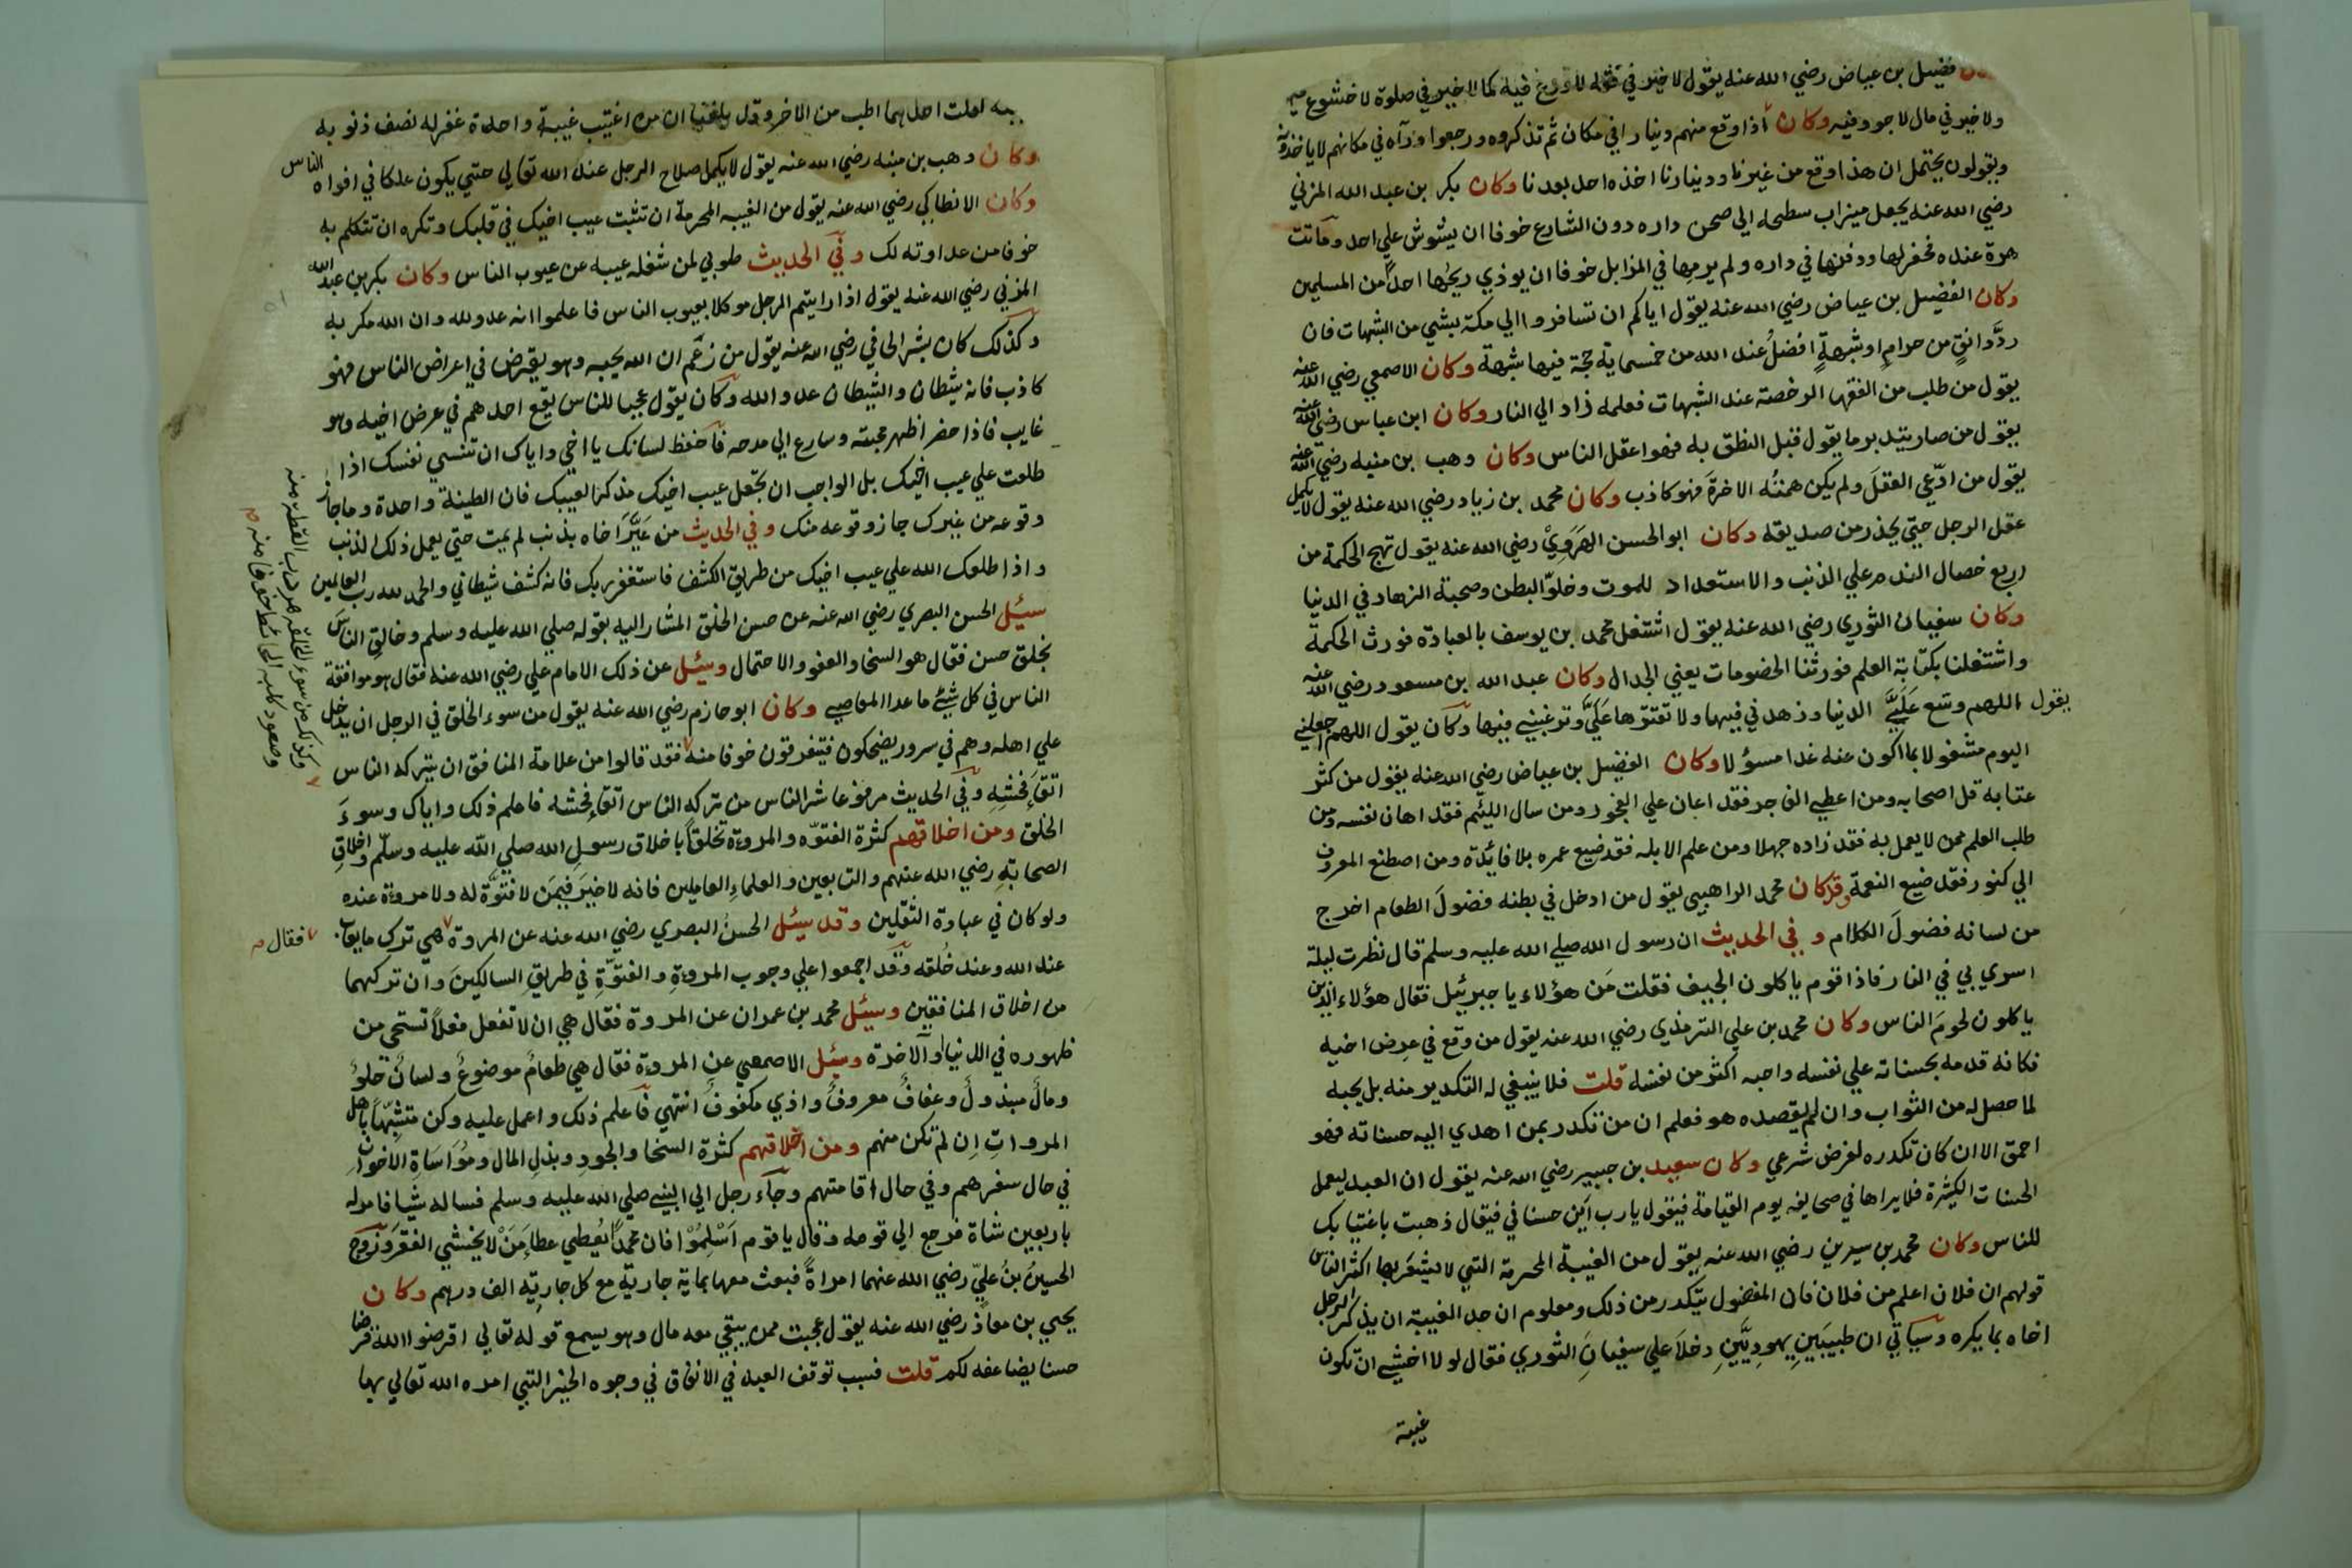 فضيل بن عياض رضي الله عنه يقول لا خير في فقه لا ورع فيه كما لا خير في صلوة لا خشوع فيها
ولا خير في مال لا جود فيه وكان اذا وقع منهم دينارا في مكان ثم تذكروه ورجعوا ورآه في مكانهم لا ياخذونه
ويقولون يحتمل ان هذا وقع من غيرنا ودينارنا اخذه احد بعدنا وكان بكر بن عبد الله المزني
رضي الله عنه يجعل ميزاب سطحه الي صحن داره دون الشارع خوفا ان يشوش علي احد وماتت
هرة عنده فحفر لها ودفنها في داره ولم يرمها في المزابل خوفا ان يوذي ريحها احداً من المسلمين
وكان الفضيل بن عياض رضي الله عنه يقول اياكم ان تسافروا الي مكة بشي من الشبهات فان
ردَّ دانقٍ من حرامٍ او شبهةٍ افضلُ عند الله من خمسماية حجة فيها شبهة وكان الاصمعي رضي الله عنه
يقول من طلب من الفقها الرخصة عند الشبهات فعلمه زاد الي النار وكان ابن عباس رضي الله عنه
يقول من صار يتدبر ما يقول قبل النطق به فهو اعقل الناس وكان وهب بن منبه رضي الله عنه
يقول من ادّعي العقلَ ولم يكن همتُه الاخرةَ فهو كاذب وكان محمد بن زياد رضي الله عنه يقول لا يكمل
عقل الرجل حتي يحذر من صديقه وكان ابو الحسن الهَرَوِيْ رضي الله عنه يقول تهيج الحكمة من
اربع خصال الندم علي الذنب والاستعداد للموت وخلوّ البطن وصحبة الزهاد في الدنيا
وكان سفيان الثوري رضي الله عنه يقول اشتغل محمد بن يوسف بالعبادة فورث الحكمة
واشتغلنا بكتابة العلم فورثنا الخصومات يعني الجدال وكان عبد الله بن مسعود رضي الله عنه
يقول اللهم وسّع عَلَيَّ الدنيا وزهدني فيها ولا تقترها عَليَّ وترغبني فيها وكان يقول اللهم اجعلني
اليوم مشغولا بما اكون عنه غدا مسؤلا وكان الفضيل بن عياض رضي الله عنه يقول من كثر
عتابه قل اصحابه ومن اعطي الفاجر فقد اعان علي الفجور ومن سال الليئم فقد اهان نفسه ومن
طلب العلم ممن لا يعمل به فقد زاده جهلا ومن علم الابله فقد ضيع عمره بلا فائدة ومن اصطنع المعروف
الي كنور فقد ضيع النعمة وقد كان محمد الراهبي يقول من ادخل في بطنه فضولَ الطعام اخرج
من لسانه فضولَ الكلام وفي الحديث ان رسول الله صلي الله عليه وسلم قال نظرت ليلة
اسري بي في النار فاذا قوم ياكلون الجيف فقلت مَن هؤلاء يا جبرئيل فقال هؤلاء الذين
ياكلون لحومَ الناس وكان محمد بن علي الترمذي رضي الله عنه يقول من وقع في عرض اخيه
فكانه قدمه بحسناته علي نفسه واحبه اكثر من نفسه قلت فلا ينبغي له التكدير منه بل يحبه
لما حصل له من الثواب وان لم يقصده هو فعلم ان من تكدر بمن اهدي اليه حسناته فهو
احمق الا ان كان تكدره لغرض شرعي وكان سعيد بن جبير رضي الله عنه يقول ان العبد ليعمل
الحسنات الكثيرة فلا يراها في صحايفه يوم القيامة فيقول يارب اَين حسناتي فيقال ذهبت باغتيابك
للناس وكان محمد بن سيرين رضي الله عنه يقول من الغيبة المحرمة التي لا يشعر بها اكثر الناس
قولهم ان فلان اعلم من فلان فان المفضول يتكدر من ذلك ومعلوم ان حد الغيبة ان يذكر الرجل
اخاه بما يكره وسياتي ان طبيبَينِ يهوديَّينِ دخلاَ علي سفيانِ الثوري فقال لولا اخشي ان تكون
غيبة
لقلت احدهما اطب من الاخر وقد بلغنا ان من اغتيب غيبة واحدة غفر له نصف ذنوبه
وكان وهب بن منبه رضي الله عنه يقول لا يكمل صلاح الرجل عند الله تعالي حتي يكون علكا في افواه الناس
وكان الانطاكي رضي الله عنه يقول من الغيبه المحرمة ان تثبت عيب اخيك في قلبك وتكره ان تتكلم به
خوفا من عداوته لك وفي الحديث طوبي لمن شغله عيبه عن عيوب الناس وكان بكر بن عبد الله
المزني رضي الله عنه يقول اذا رايتم الرجل موكلا بعيوب الناس فاعلموا انه عدو لله وان الله مكر به
وكذلك كان بشر الحافي رضي الله عنه يقول من زعم ان الله يحبه وهو يقرض في اعراض الناس فهو
كاذب فانه شيطان والشيطان عدو الله وكان يقول عجبا للناس يقع احدهم في عرض اخيه وهو
غايب فاذا حضر اظهر محبته وسارع الي مدحه فاحفظ لسانك يا اخي واياك ان تنسي نفسك اذا
طلعت علي عيب اخيك بل الواجب ان تجعل عيب اخيك مذكرا لعيبك فان الطينة واحدة وما جاز
وقوعه من غيرك جاز وقوعه منك وفي الحديث من عَيَّرَ اخاه بذنب لم يمت حتي يعمل ذلك الذنب
واذا طلعك الله علي عيب اخيك من طريق الكشف فاستغفر ربك فانه كشف شيطاني والحمد لله رب العالمين
سئيل الحسن البصري رضي الله عنه عن حسن الخلق المشار اليه بقوله صلي الله عليه وسلم وخالقِ الناسَ
بخلق حسن فقال هو السخا والعفو والاحتمال وسئيل عن ذلك الامام علي رضي الله عنه فقال هو موافقة
الناس في كل شيئ ما عدا المعاصي وكان ابو حازم رضي الله عنه يقول من سوء الخلق في الرجل ان يدخل
علي اهله وهم في سرور يضحكون فيتفرقون خوفا منه فقد قالوا من علامة المنافق ان يتركه الناس
اتقاَءَ فحشه وفي الحديث مرفوعا شر الناس من تركه الناس اتقاء فحشه فاعلم ذلك واياك وسوءَ
الخلق ومن اخلاقهم كثرة الفتوّه والمروءة تخلقاً باخلاق رسولِ الله صلي الله عليه وسلّم واخلاقِ
الصحابَةِ رضي الله عنهم والتابعين والعلماءِ العاملين فانه لا خيرَ فيمَن لا فتوَّة له ولا مروءة عنده
ولو كان في عبادة الثَقلين وقد سئيل الحسنُ البصري رضي الله عنه عن المروة هي ترك ما يعاب
عند الله وعند خُلقه وقد اجمعوا علي وجوب المروءةِ والفتوّةِ في طريقِ السالكينَ وان تركهما
من اخلاق المنافقين وسئيل محمد بن عمران عن المروة فقال هي ان لا تفعل فعلاً تستحي من
ظهوره في الدنيا والآخرة وسئيل الاصمعي عن المروءة فقال هي طعامُ موضوعُ ولسانُ حلوُ
ومالُ مبذولُ وعفافُ معروفُ واذي مكفوفُ انتهي فاعلم ذلك واعمل عليه وكن متشبّهاً باهل
المروءاتِ اِن لم تكن منهم ومن اخلاقهم كثرة السخا والجودِ وبذلِ المال ومُؤَاسَاةِ الاخوانِ
في حال سفرهم وفي حال اقامتهم وجاَء رجل الي النبي صلي الله عليه وسلم فساله شيا فامر له
باربعين شاة فرجع الي قومه وقال يا قوم اَسْلِمُوْا فان محمداً يُعطي عطاءَ مَنْ لا يخشي الفقرَ وتزوج
الحسينُ بنُ عليّ رضي الله عنهما امراةً فبعث معها بماية جارية مع كل جارية الف درهم وكان
يحيي بن معاذ رضي الله عنه يقول عجبت ممن يبقي معه مال وهو يسمع قوله تعالي اقرضوا الله قرضا
حسنا يضاعفه لكم قلت فسبب توقف العبد في الانفاق في وجوه الخير التي امره الله تعالي بها
وكذلك من سوء الخلق هرب القطة منه
وصعود كلبه الحائط خوفا منه
فقال